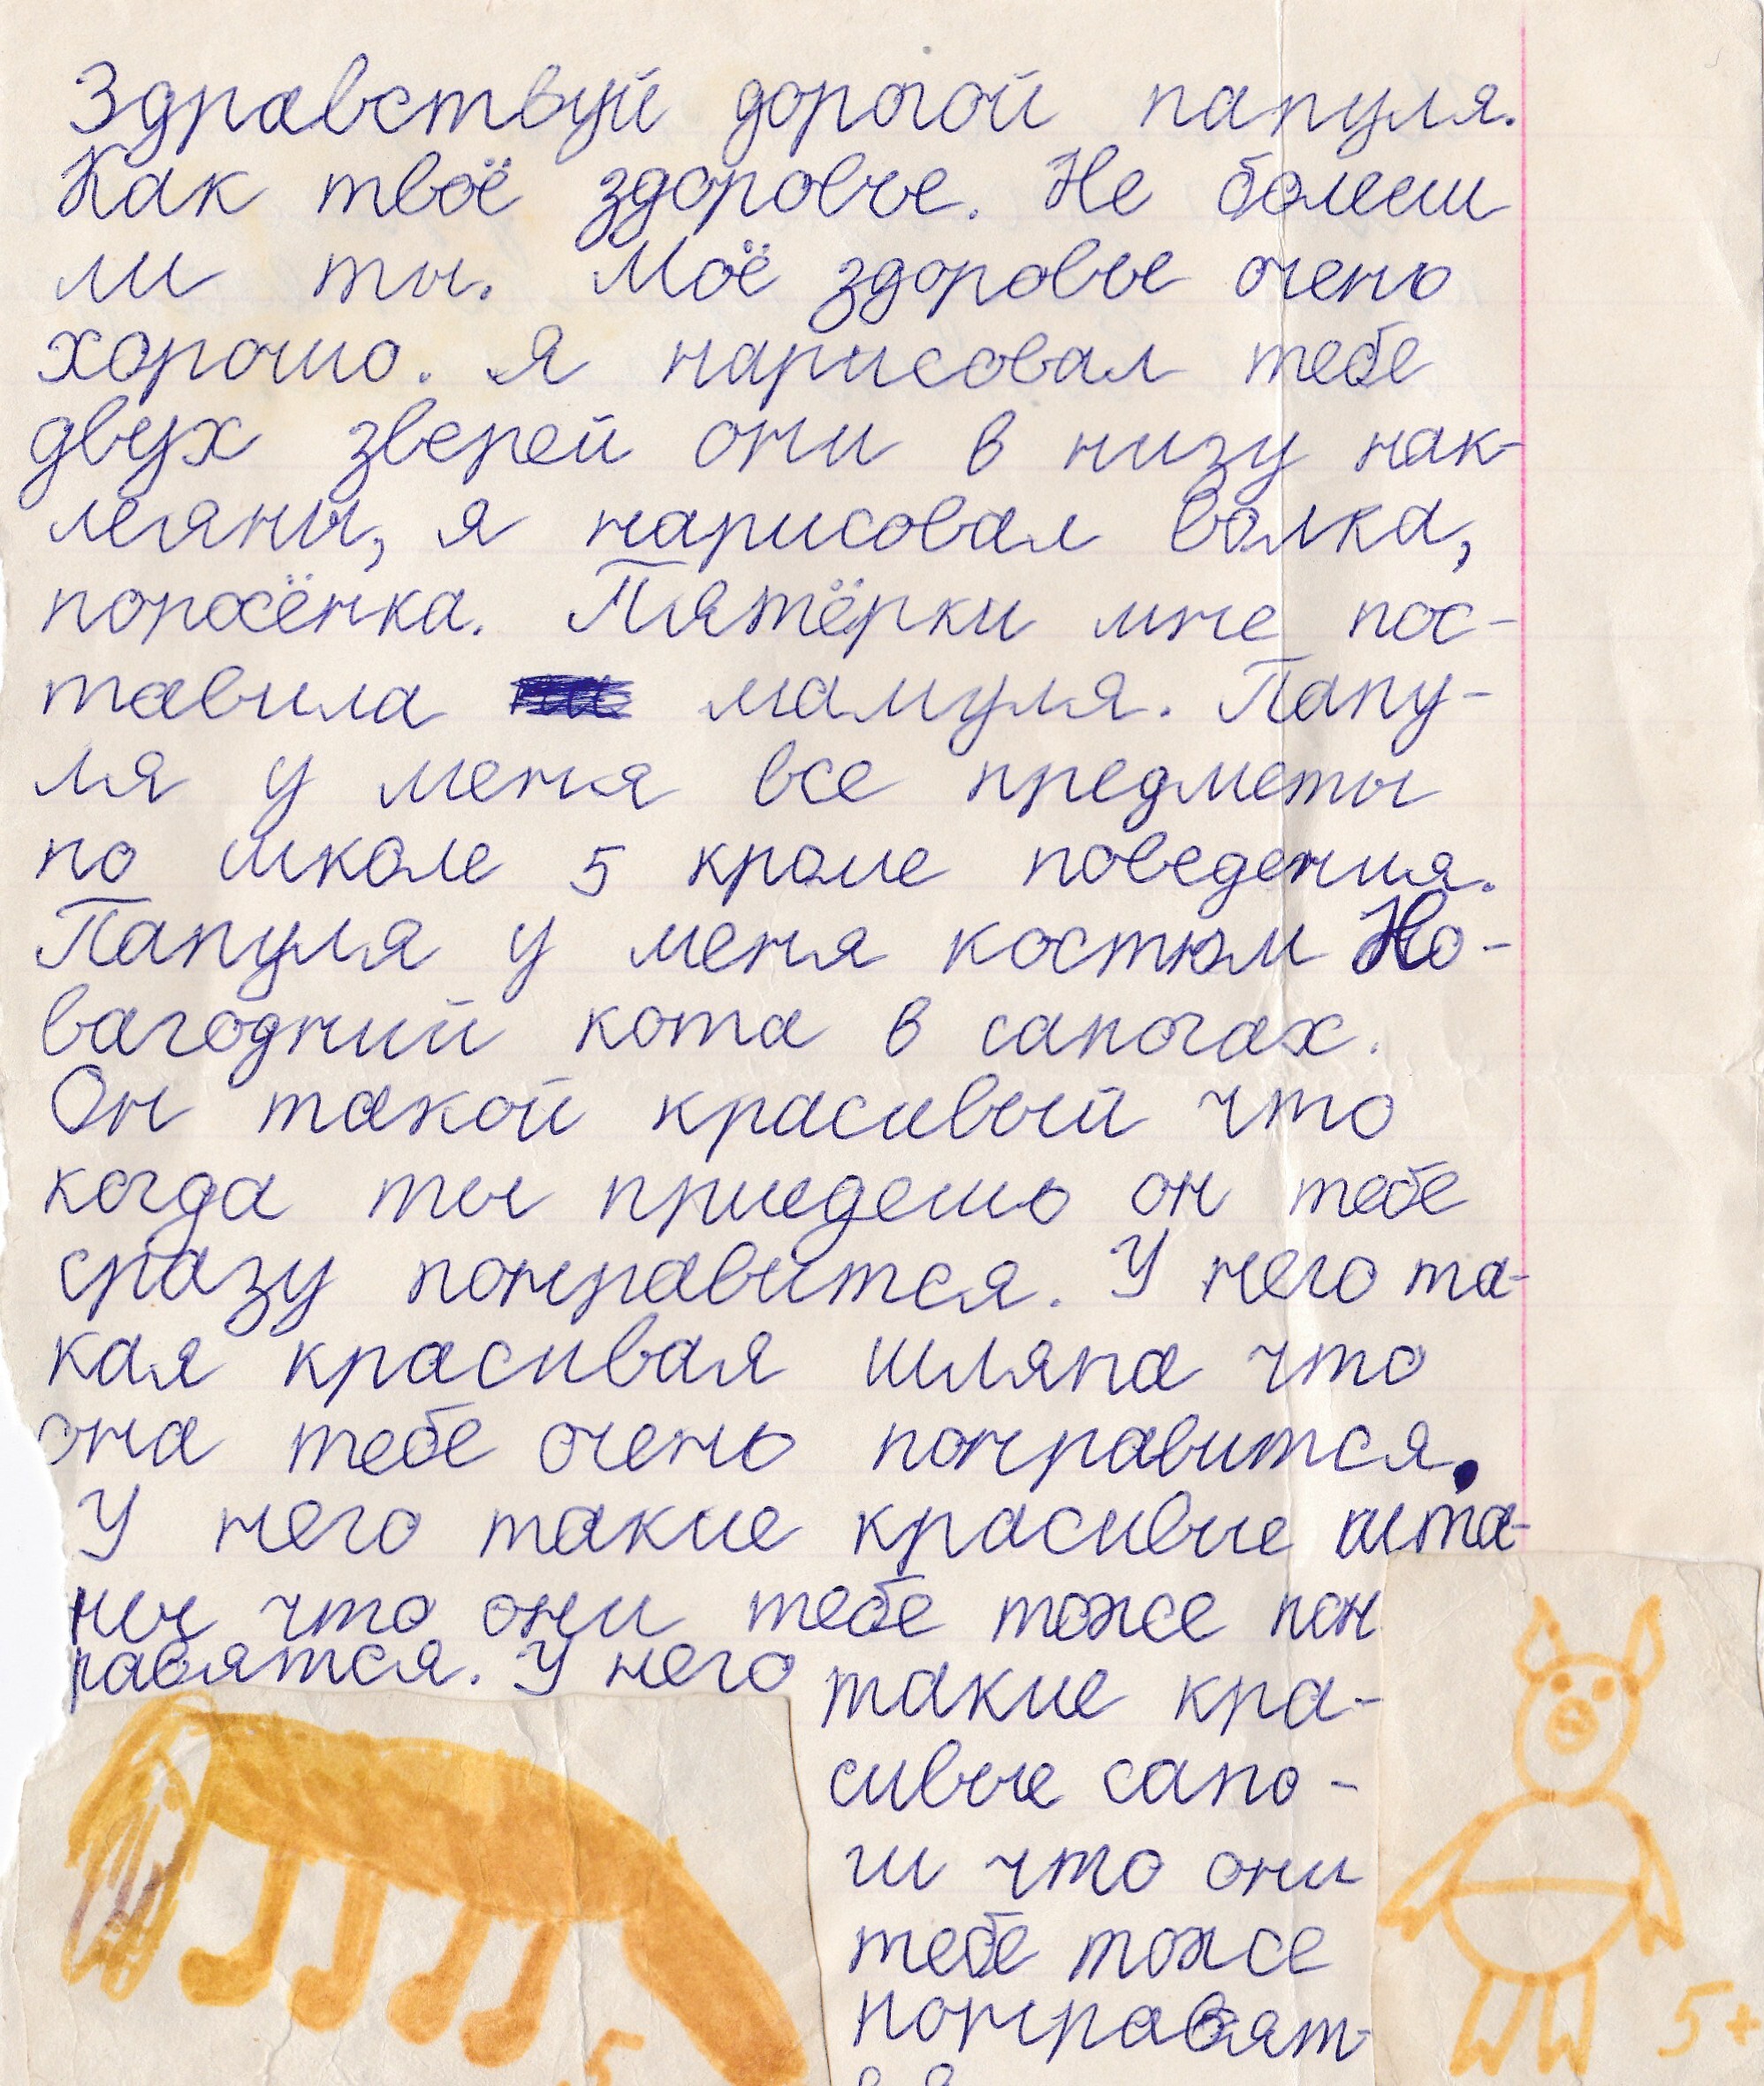 Здравствуй дорогой папуля.
Как твоё здоровье. Не болееш
ли ты. Моё здоровье очень
хорошо. я нарисовал тебе
двух зверей они в низу нак-
леяны, я нарисовал волка,
поросёнка. Пятёрки мне пос-
тавила мамуля. Папу-
ля у меня все предметы
по школе 5 кроме поведения.
Папуля у меня костюм Но-
вагодний кота в сапогах.
Он такой красивый что
когда ты приедешь он тебе
сразу понравится. У него та-
кая красивая шляпа что
она тебе очень понравится.
У него такие красивые шта-
ны что они тебе тоже пон
равятся. У него такие кра-
сивые сапо-
ги что они
тебе тоже
понравят-
ся
5
5+